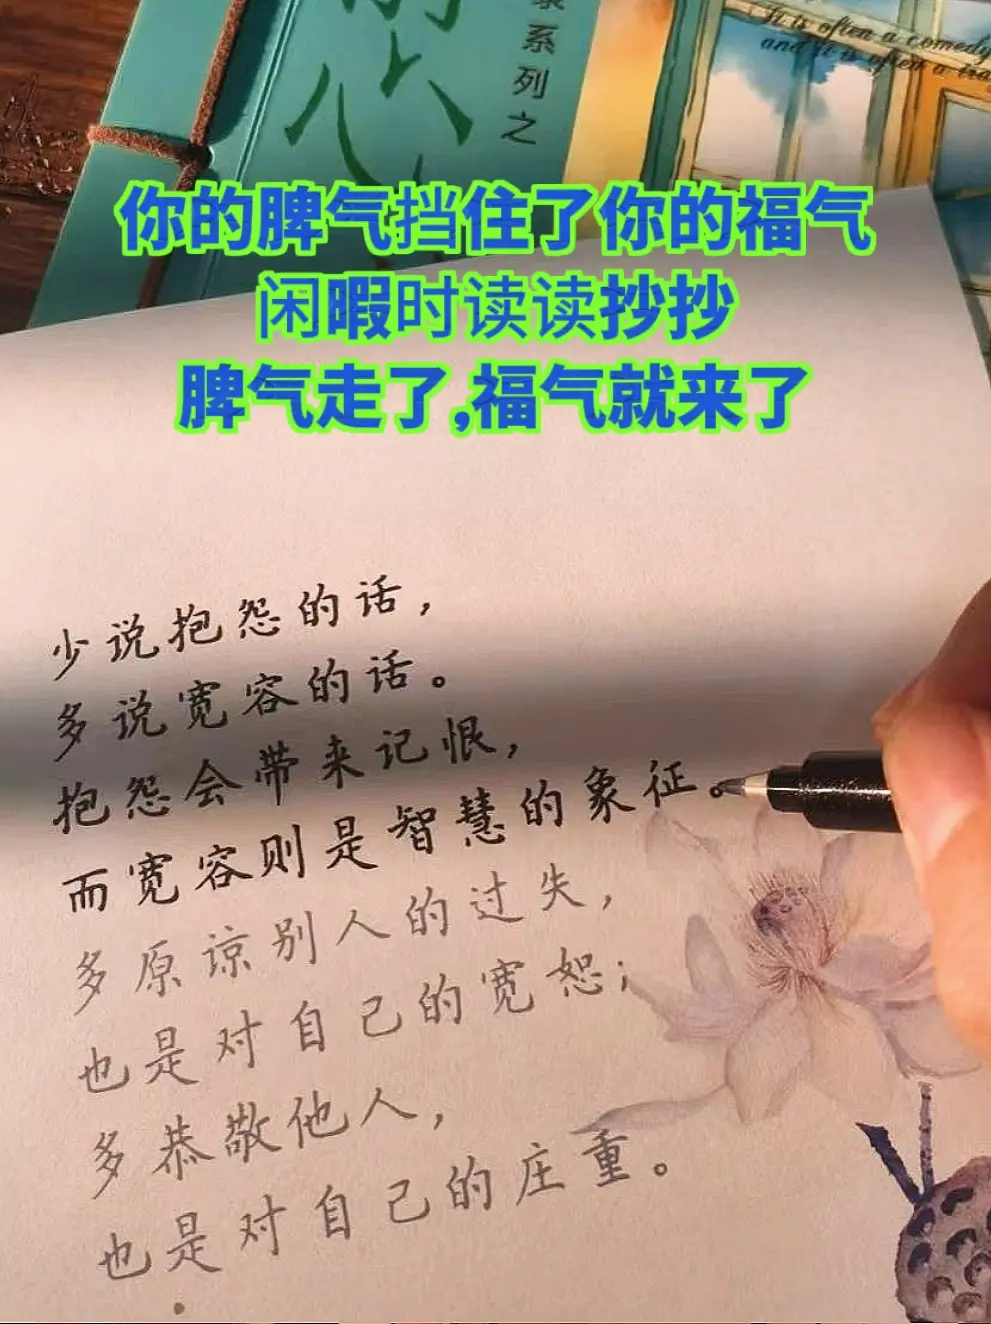 系列之
It is often a comedy
and it is often a
你的脾气挡住了你的福气
闲暇时读读抄抄
脾气走了,福气就来了
少说抱怨的话，
多说宽容的话。
抱怨会带来记恨，
而宽容则是智慧的象征。
多原谅别人的过失，
也是对自己的宽恕；
多恭敬他人，
也是对自己的庄重。